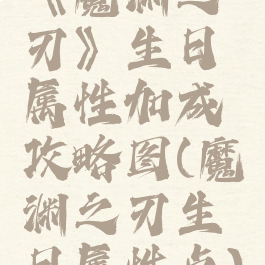 《魔渊之
刃》生日
属性加成
攻略图(魔
渊之刃生
日属性点)